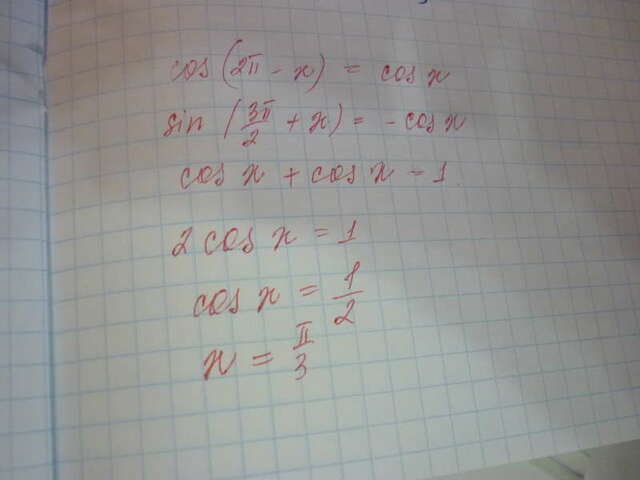 cos(2π - x) = cos x
sin(3π/2 + x) = - cos x
cos x + cos x - 1
2 cos x = 1
cos x = 1/2
x = π/3